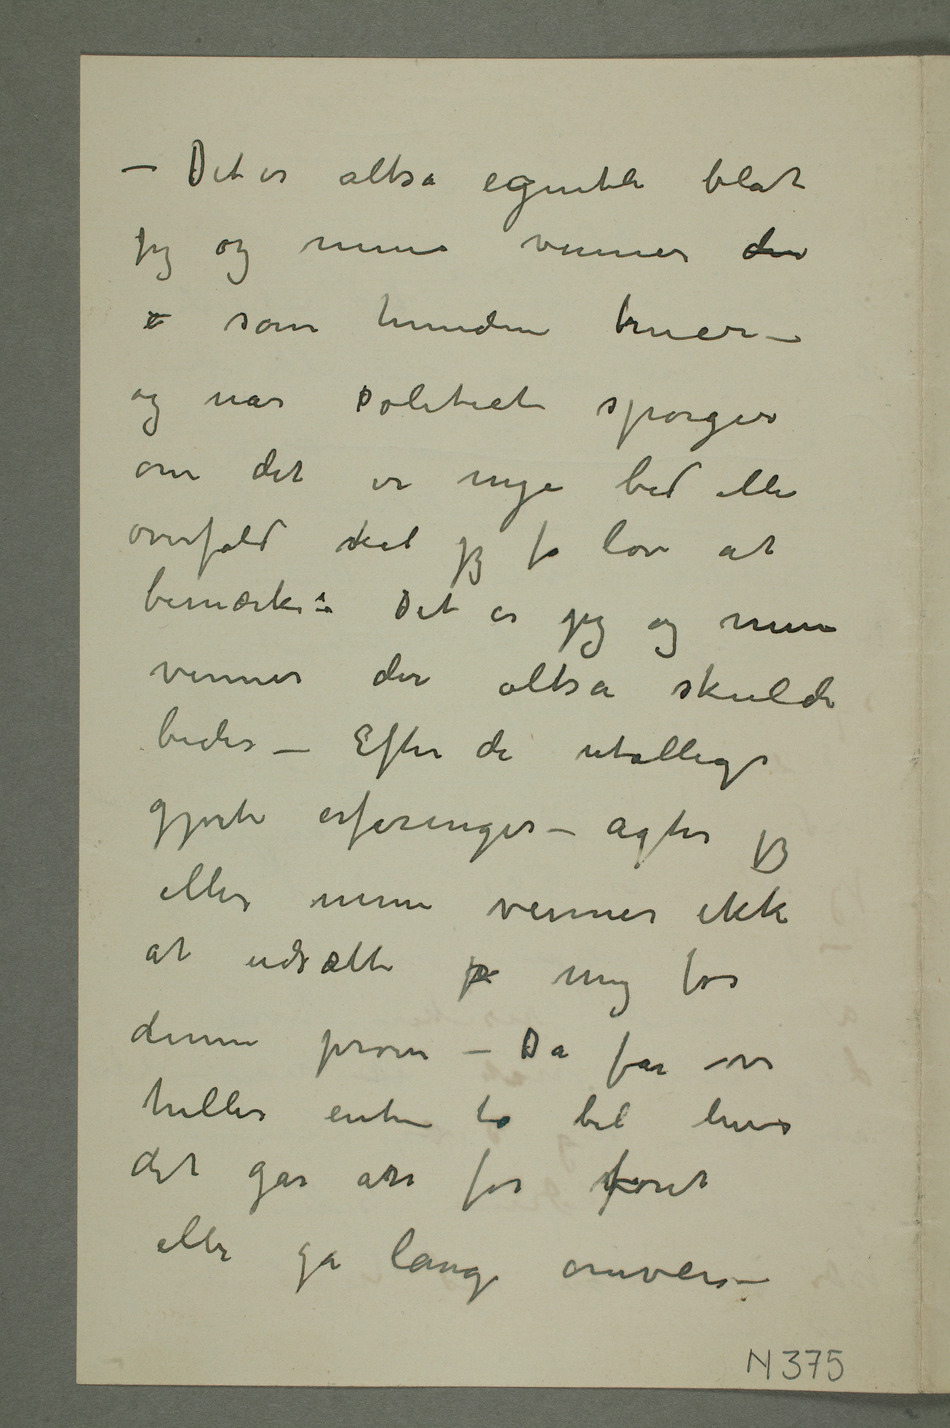 – Det er altså egentli blåt
jeg og mine venner der
som hunden truer –
og når politiet spørger
om det er mye bid eller
overfald skal jeg få lov at
bemærke: Det er jeg og mine
venner der altså skulde
bides – Efter de utallige
gjorte erfaringer – agter jeg
eller mine venner ikke
at udsætte på mig for
denne prøve – Da får vi
heller enten ta bil hvis
det går an for føret
eller gå lange omveie –
N 375